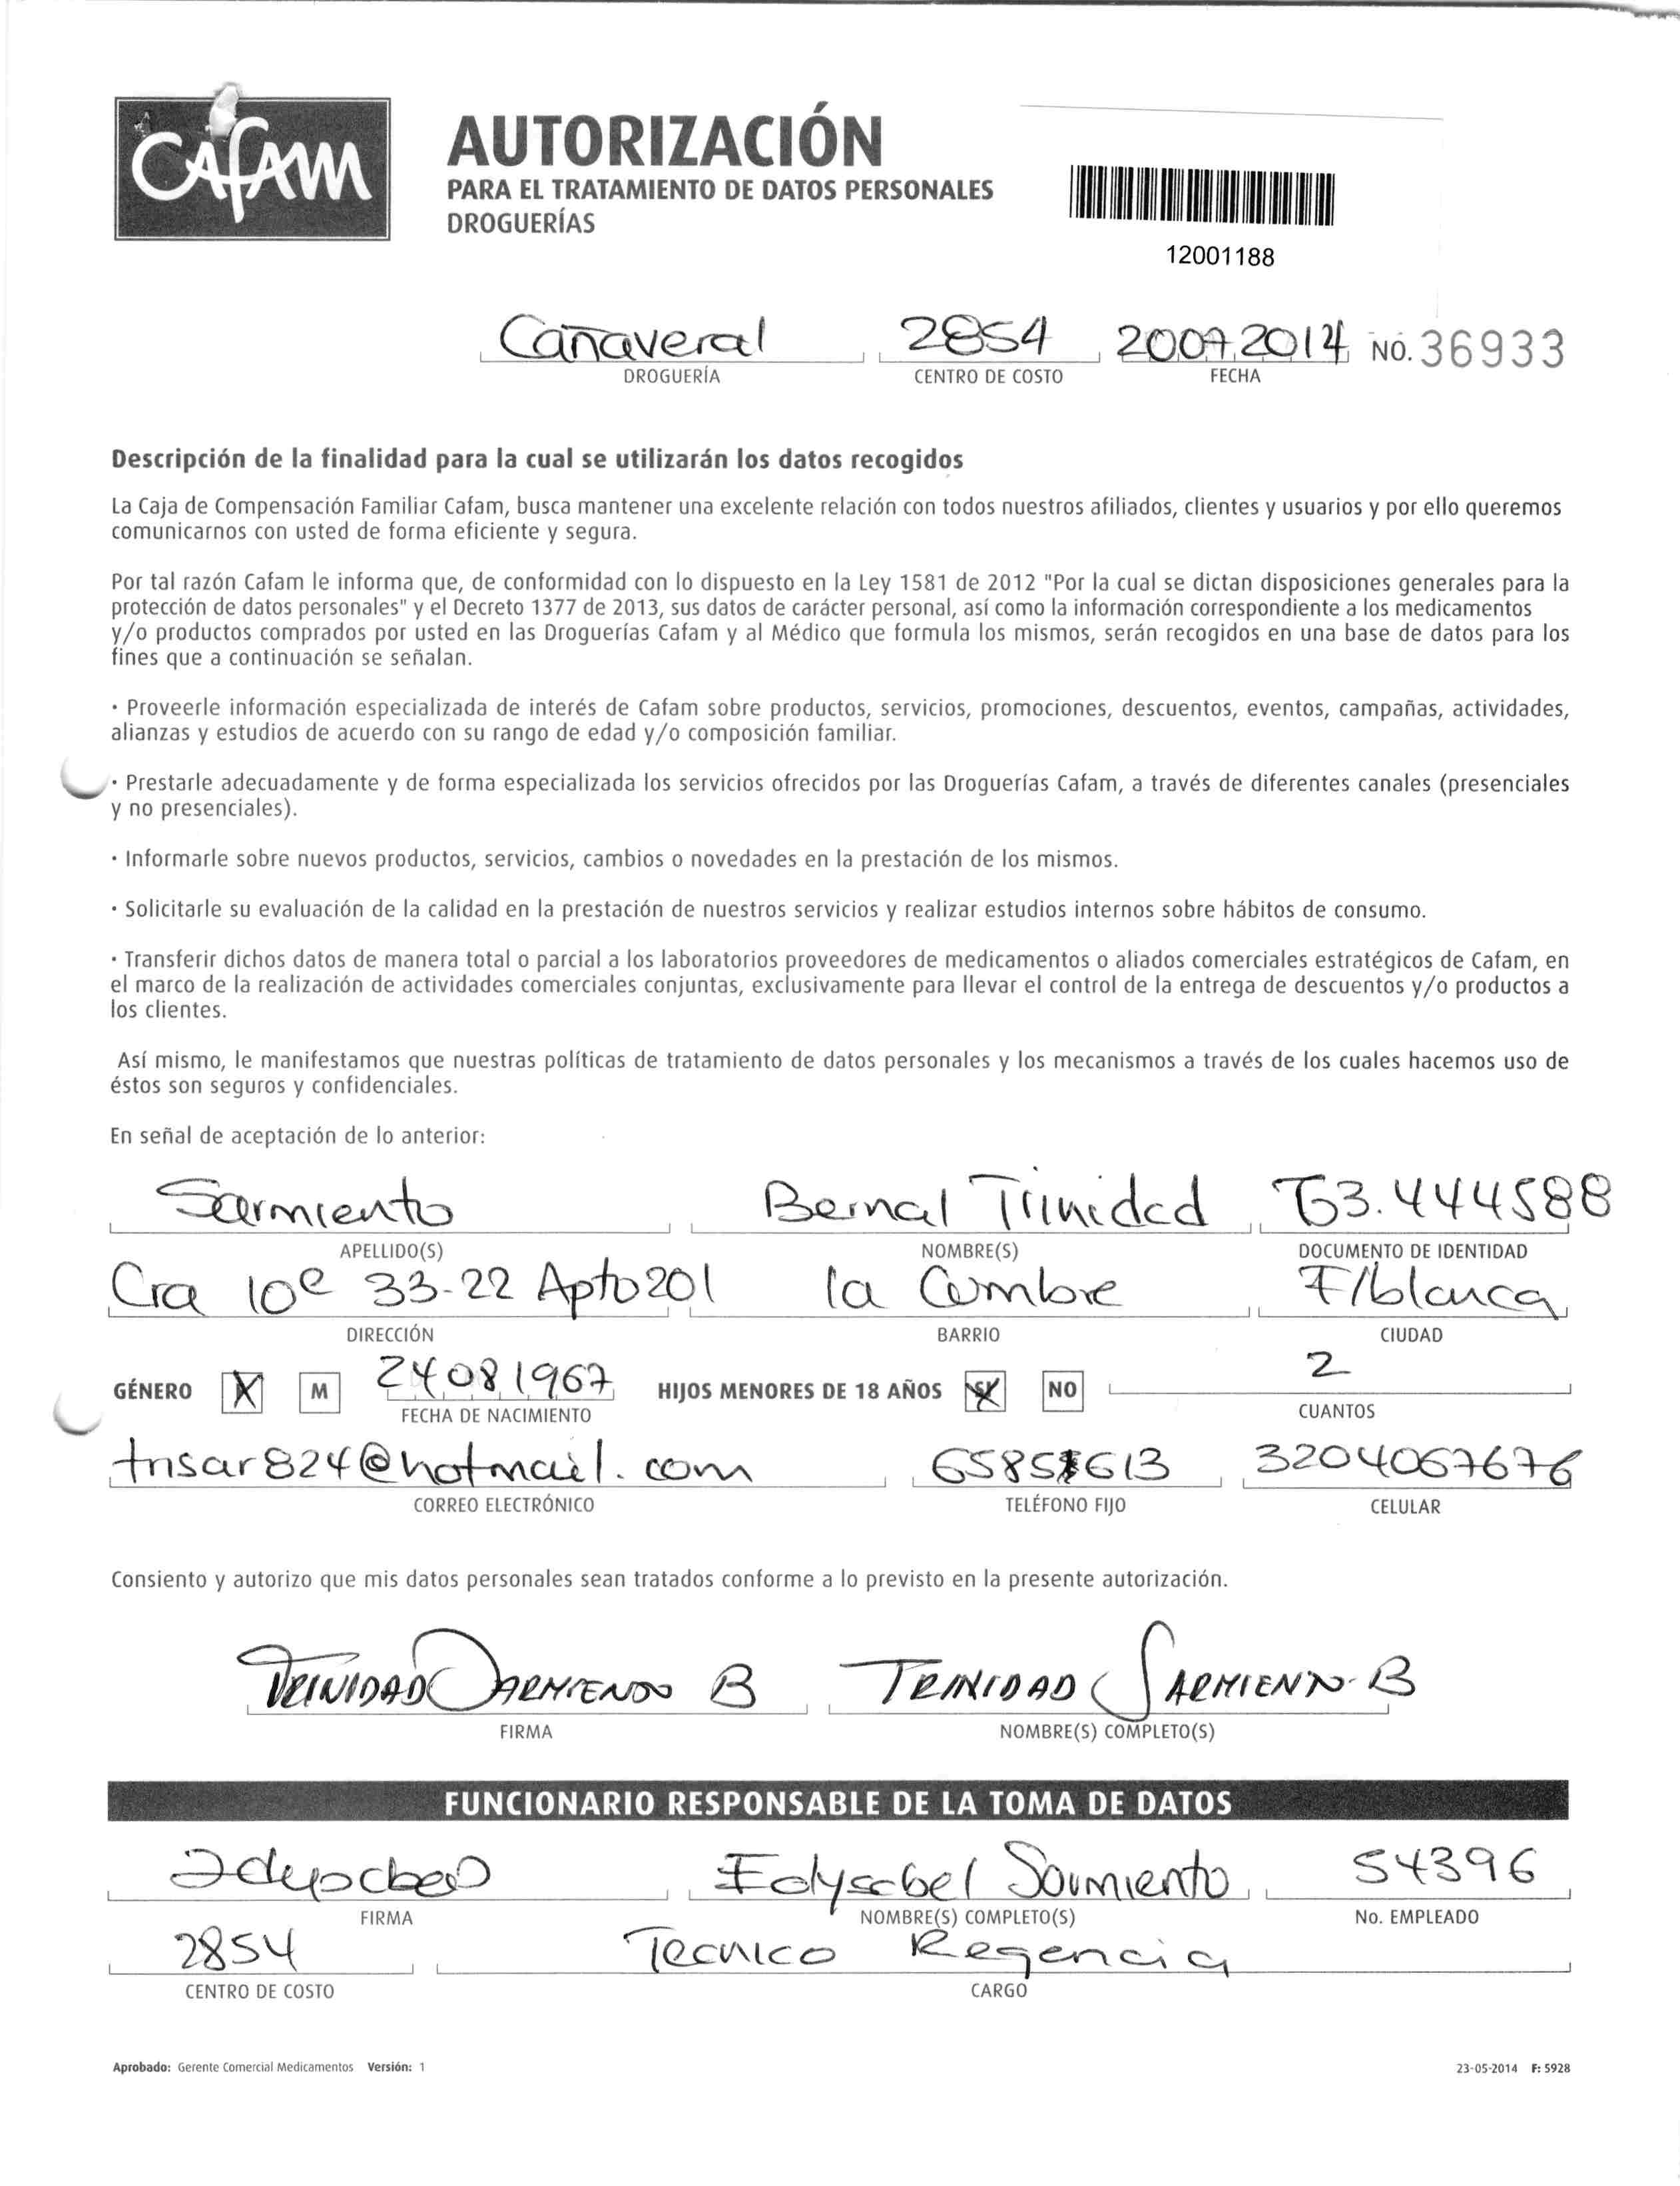 Cafam
AUTORIZACIÓN
PARA EL TRATAMIENTO DE DATOS PERSONALES
DROGUERÍAS
12001188
Cañaveral 2854 20072014 NO. 36933
DROGUERÍA CENTRO DE COSTO FECHA
Descripción de la finalidad para la cual se utilizarán los datos recogidos
La Caja de Compensación Familiar Cafam, busca mantener una excelente relación con todos nuestros afiliados, clientes y usuarios y por ello queremos
comunicarnos con usted de forma eficiente y segura.
Por tal razón Cafam le informa que, de conformidad con lo dispuesto en la Ley 1581 de 2012 "Por la cual se dictan disposiciones generales para la
protección de datos personales" y el Decreto 1377 de 2013, sus datos de carácter personal, así como la información correspondiente a los medicamentos
y/o productos comprados por usted en las Droguerías Cafam y al Médico que formula los mismos, serán recogidos en una base de datos para los
fines que a continuación se señalan.
· Proveerle información especializada de interés de Cafam sobre productos, servicios, promociones, descuentos, eventos, campañas, actividades,
alianzas y estudios de acuerdo con su rango de edad y/o composición familiar.
· Prestarle adecuadamente y de forma especializada los servicios ofrecidos por las Droguerías Cafam, a través de diferentes canales (presenciales
y no presenciales).
· Informarle sobre nuevos productos, servicios, cambios o novedades en la prestación de los mismos.
· Solicitarle su evaluación de la calidad en la prestación de nuestros servicios y realizar estudios internos sobre hábitos de consumo.
· Transferir dichos datos de manera total o parcial a los laboratorios proveedores de medicamentos o aliados comerciales estratégicos de Cafam, en
el marco de la realización de actividades comerciales conjuntas, exclusivamente para llevar el control de la entrega de descuentos y/o productos a
los clientes.
Así mismo, le manifestamos que nuestras políticas de tratamiento de datos personales y los mecanismos a través de los cuales hacemos uso de
éstos son seguros y confidenciales.
En señal de aceptación de lo anterior:
Sarmiento Bernal Trinidad 63.444588
APELLIDO(S) NOMBRE(S) DOCUMENTO DE IDENTIDAD
Cra 10e 33-22 Apto 201 la Cumbre F/blanca
DIRECCIÓN BARRIO CIUDAD
GÉNERO X M 24081967 HIJOS MENORES DE 18 AÑOS SI NO 2
FECHA DE NACIMIENTO CUANTOS
trisar824@hotmail.com 3204067676
CORREO ELECTRÓNICO TELÉFONO FIJO CELULAR
Consiento y autorizo que mis datos personales sean tratados conforme a lo previsto en la presente autorización.
TRINIDAD SARMIENTO B TRINIDAD SARMIENTO B
FIRMA NOMBRE(S) COMPLETO(S)
FUNCIONARIO RESPONSABLE DE LA TOMA DE DATOS
Edysabel Sarmiento 54396
FIRMA NOMBRE(S) COMPLETO(S) No. EMPLEADO
2854 Tecnico Regencia
CENTRO DE COSTO CARGO
Aprobado: Gerente Comercial Medicamentos Versión: 1 23-05-2014 F: 5928